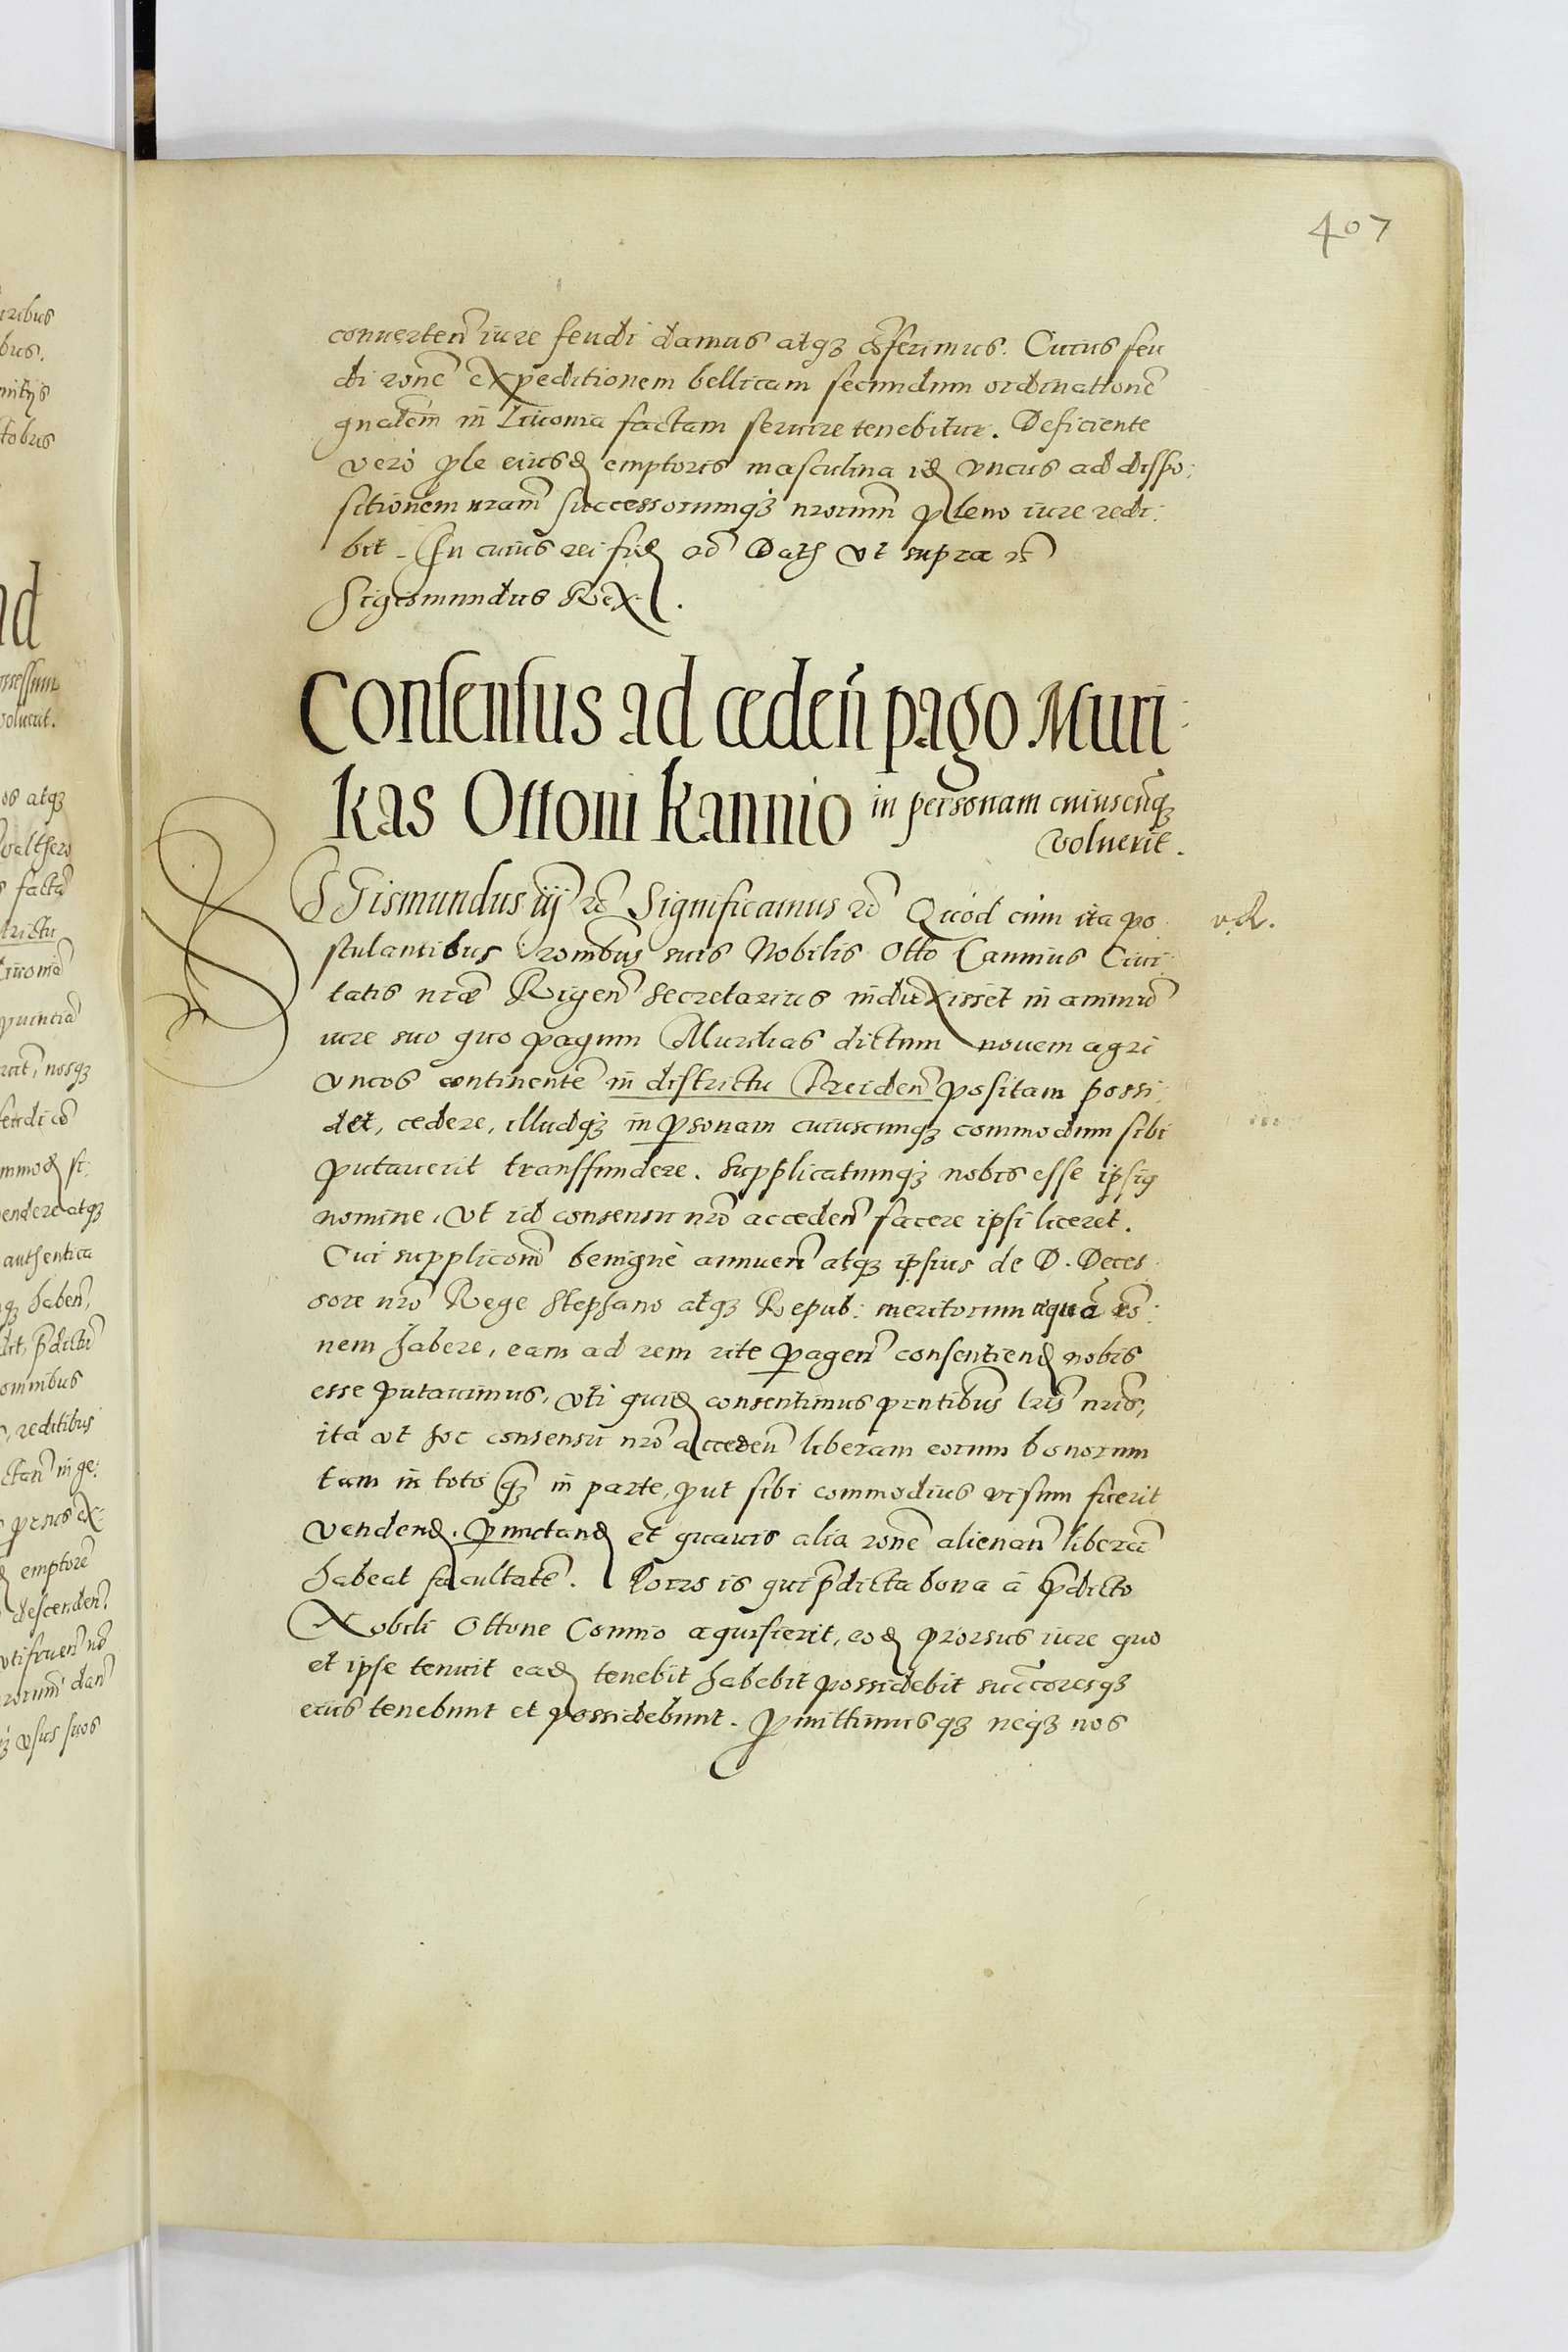 407
conuerten̄ iure feudi damus atqꝫ cōferimus. Cuius feu
di rōne expeditionem bellicam secundum ordinationē
gn̄alem in Liuonia factam seruire tenebitur. Deficiente
vero ꝓle eiusd emptoris masculina id vncus ad dispo:
sitionem nr̄am successorumqꝫ nr̄orum pleno iure redi:
bit. In cuius rei fid Dat vt supra
Sigismundus Rex.
Consensus ad ceden̄ pago Muri:
kas Ottoni Kannio in personam cuiuscūqꝫ
voluerit.
SIGismundus iij rc̄ Significamus rc̄ Quod cum ita po
v. R.
stulantibus rōnibus suis Nobilis Otto Cannius Ciui:
tatis nr̄æ Rigen̄ Secretarius induxisset in animū
iure suo quo pagum Murikas dictum nouem agri
vncos continentē in districtu Treiden̄ positam possi:
det, cedere, illudqꝫ in ꝑsonam cuiuscunqꝫ commodum sibi
putauerit transfundere. Supplicatumqꝫ nobis esse ipsiꝰ
nomine, vt id consensu nr̄o acceden̄ facere ipsi liceret.
Cui supplicōni benignè annuen̄ atqꝫ ipsius de D. Deces
sore nr̄o Rege Stephano atqꝫ Repub: meritorum æquā rō:
nem habere, eam ad rem rite ꝑagen̄ consentiend nobis
esse putauimus, vti quid consentimus pn̄tibus lr̄is nr̄is,
ita vt hoc consensu nr̄o acceden̄ liberam eorum bonorum
tam in toto qꝫ in parte, ꝓut sibi commodius visum fuerit
vendend. ꝑmutand et quauis alia rōne alienan̄ liberā
habeat facultatē. Porro is qui p̄dicta bona à p̄dicto
Nobili Ottone Connio æquisierit, eod prorsus iure quo
et ipse tenuit ead tenebit habebit possidebit succ̄coresqꝫ
eius tenebunt et possidebunt. Promittimusqꝫ neqꝫ nos